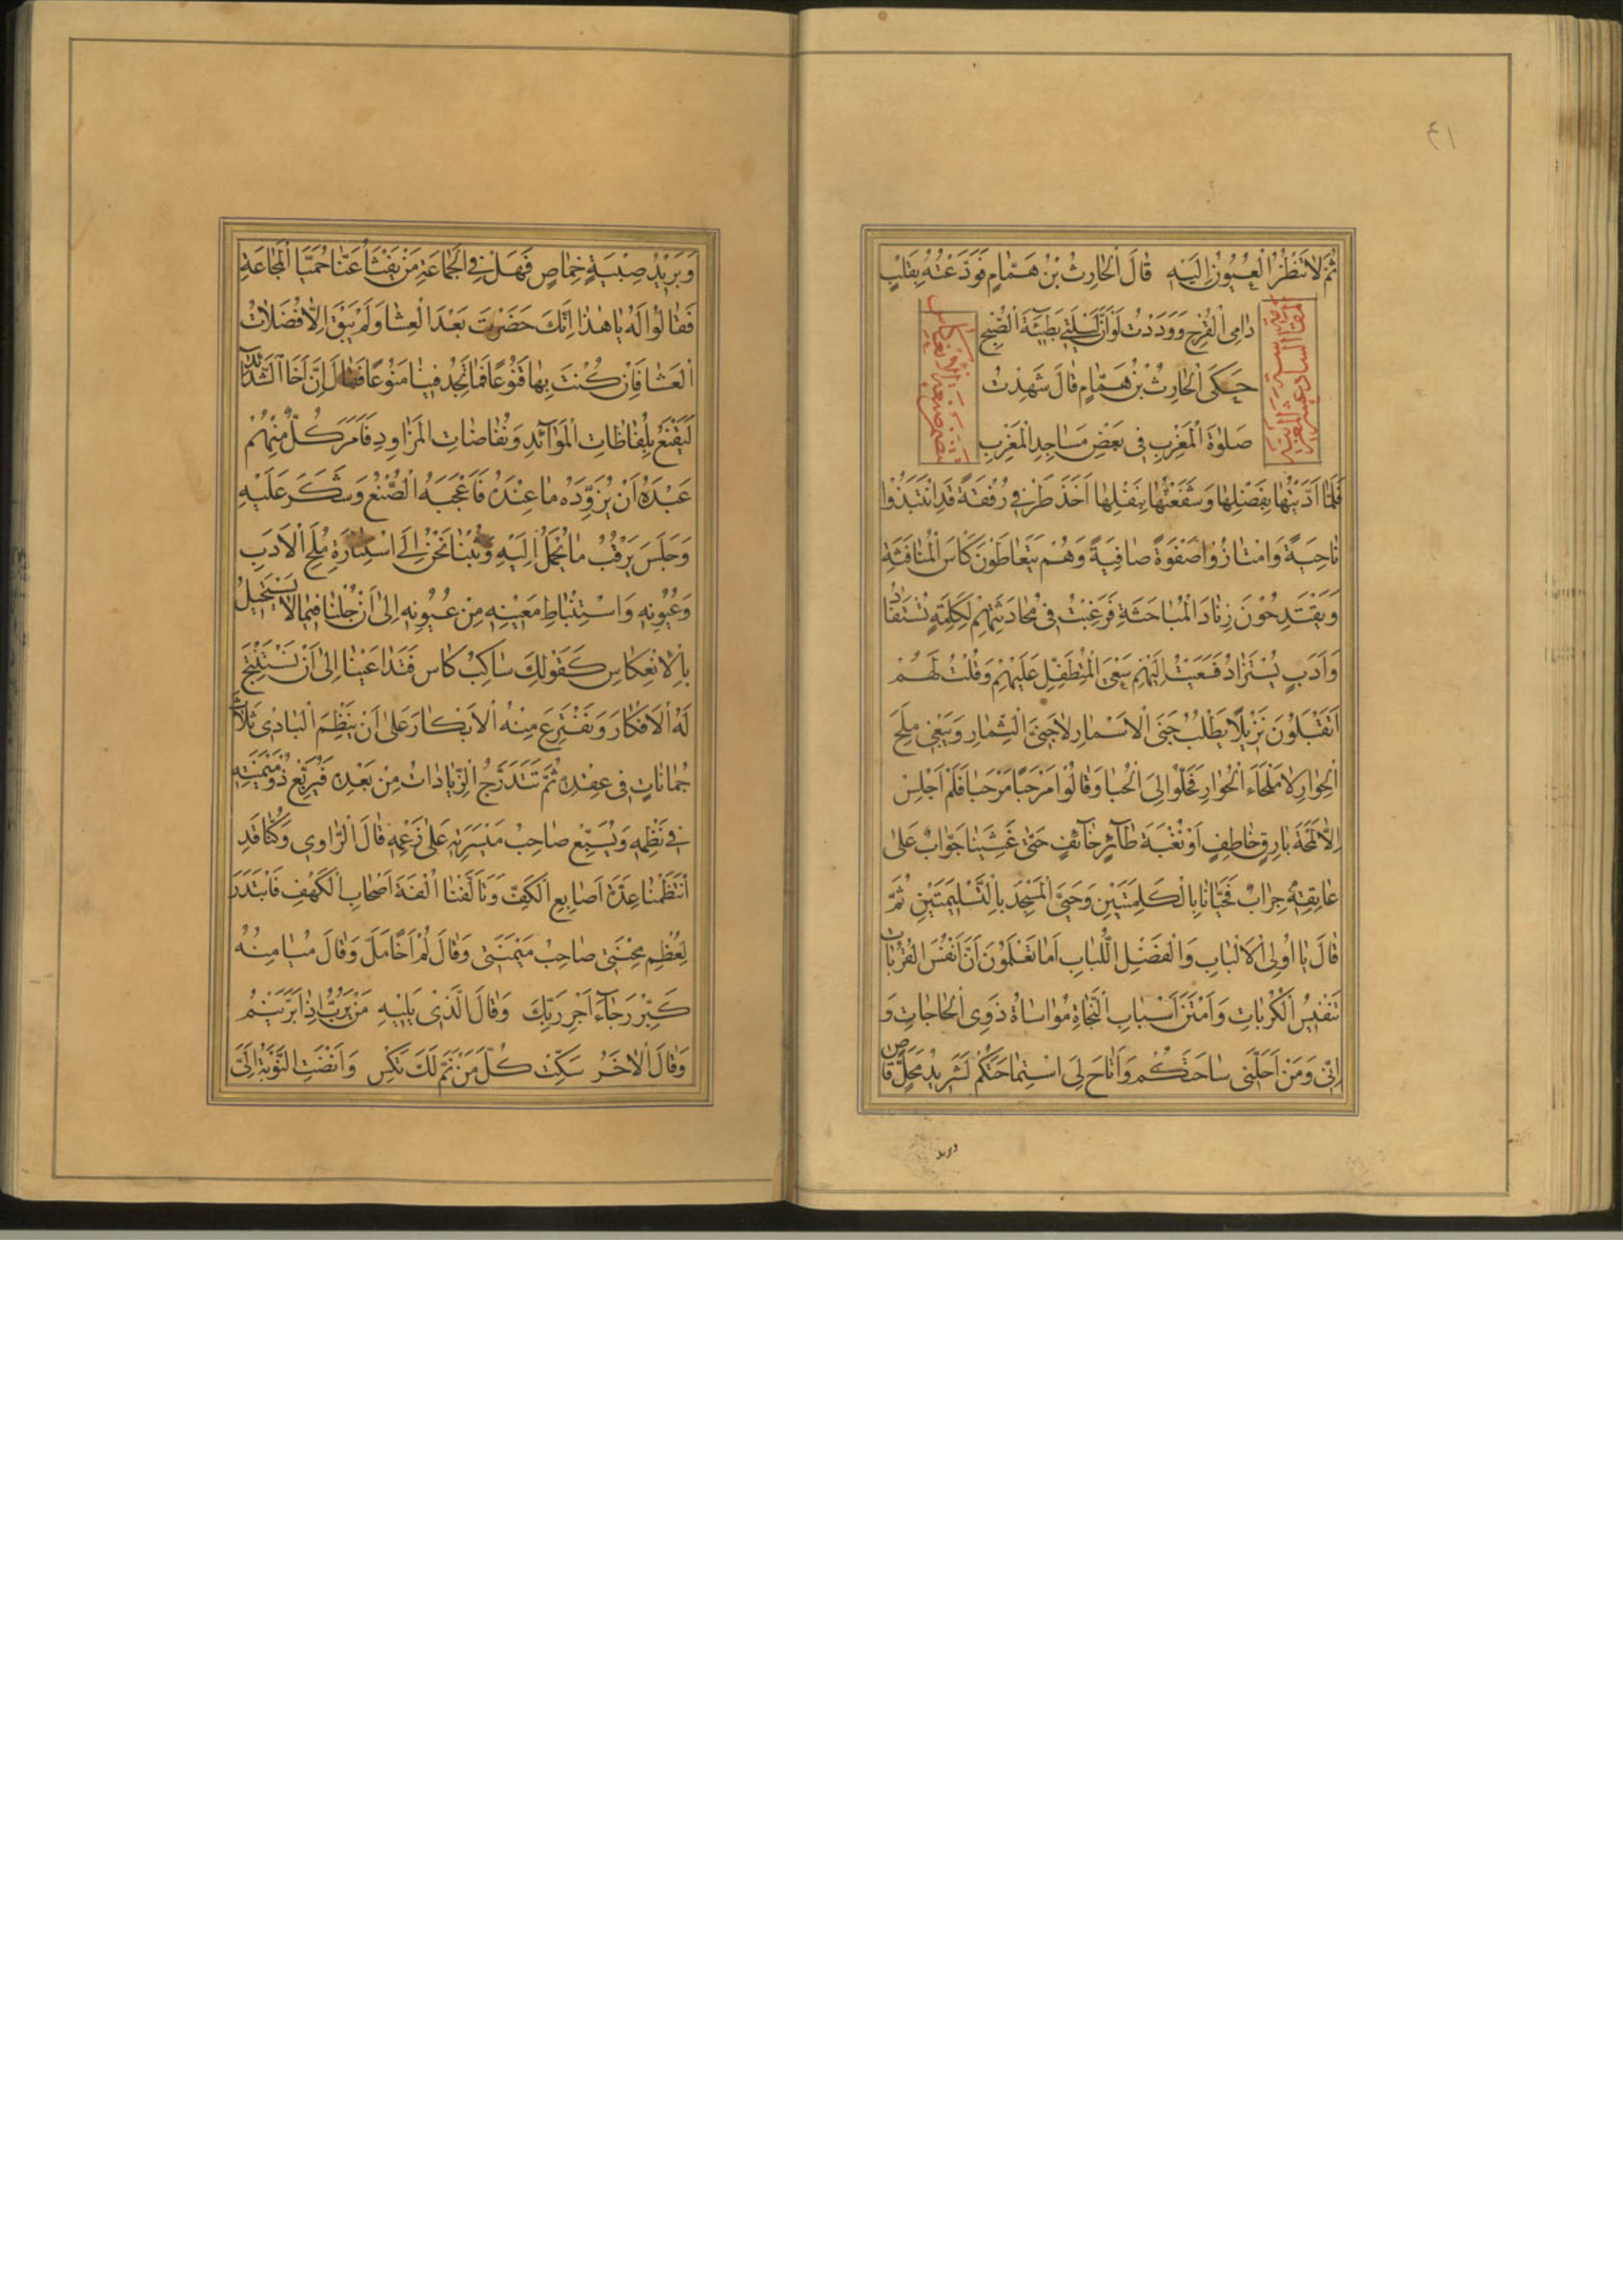 ٤١
ثُمَّ لَا تَنْظُرُ الْعُيُونُ اِلَيْهِ قَالَ الْحَارِثُ بْنُ هَمَّامٍ فَوَدَّعْتُهُ بِقَلْبٍ
دَامِى الْقَرْحِ وَوَدَدْتُ لَوْ اَنَّ لَيْلَتِى بَطِيْئَةُ الصُّبْحِ
المقامة السادسة عشر المغربية
حَكَى الْحَارِثُ بْنُ هَمَّامٍ قَالَ شَهِدْتُ
صَلٰوةَ الْمَغْرِبِ فِى بَعْضِ مَسَاجِدِ الْمَغْرِبِ
فَلَمَّا اَدَّيْتُهَا بِفَضْلِهَا وَشَفَعْتُهَا بِنَفْلِهَا اَخَذَ طَرْفِى رُفْقَةً قَدِ انْتَبَذُوا
نَاحِيَةً وَامْتَازُوا صَفْوَةً صَافِيَةً وَهُمْ يَتَعَاطَوْنَ كَاْسَ الْمُنَافَثَةِ
وَيَقْتَدِحُوْنَ زِنَادَ الْمُبَاحَثَةِ فَرَغِبْتُ فِى مُحَادَثَتِهِمْ لِكَلِمَةٍ تُسْتَفَادُ
وَاَدَبٍ يُسْتَزَادُ فَسَعَيْتُ اِلَيْهِمْ سَعْىَ الْمُتَطَفِّلِ عَلَيْهِمْ وَقُلْتُ لَهُمْ
اَتَقْبَلُوْنَ نَزِيْلًا يَطْلُبُ جَنَى الْاَسْمَارِ لَا جَنَى الثِّمَارِ وَيَبْغِى مُلَحَ
الْحِوَارِ لَا مَلْحَاءَ الْحُوَارِ فَحَلُّوا لِىَ الْحُبَا وَقَالُوْا مَرْحَبًا مَرْحَبًا فَلَمْ اَجْلِسْ
اِلَّا لَمْحَةَ بَارِقٍ خَاطِفٍ اَوْ نُغْبَةَ طَآئِرٍ خَآئِفٍ حَتّٰى غَشِيَنَا جَوَّابٌ عَلٰى
عَاتِقِهِ جِرَابٌ فَحَيَّانَا بِالْكَلِمَتَيْنِ وَحَيَّى الْمَسْجِدَ بِالتَّسْلِيْمَتَيْنِ ثُمَّ
قَالَ يَا اُولِى الْاَلْبَابِ وَالْفَضْلِ اللُّبَابِ اَمَا تَعْلَمُوْنَ اَنَّ اَنْفَسَ الْقُرُبَاتِ
تَنْفِيْسُ الْكُرُبَاتِ وَاَمْتَنَ اَسْبَابِ النَّجَاةِ مُوَاسَاةُ ذَوِى الْحَاجَاتِ وَ
اِنِّى وَمَنْ اَحَلَّنِى سَاحَتَكُمْ وَاَتَاحَ لِىَ اسْتِمَاحَتَكُمْ لَشَرِيْدُ مَحَلٍّ قَاصٍ
وبريد
وَبَرِيْدُ صِبْيَةٍ خِمَاصٍ فَهَلْ فِى الْجَمَاعَةِ مَنْ يَفْثَأُ عَنَّا حُمَيَّا الْمَجَاعَةِ
فَقَالُوْا لَهُ يَا هٰذَا اِنَّكَ حَضَرْتَ بَعْدَ الْعِشَا وَلَمْ يَبْقَ اِلَّا فُضَلَاتُ
الْعَشَا فَاِنْ كُنْتَ بِهَا قَنُوْعًا فَمَا تَجِدُ فِيْنَا مَنُوْعًا فَقَالَ اِنَّ اَخَا الشَّدَآئِدِ
لَيَقْنَعُ بِلُفَاظَاتِ الْمَوَآئِدِ وَنُفَاضَاتِ الْمَزَاوِدِ فَاَمَرَ كُلٌّ مِنْهُمْ
عَبْدَهُ اَنْ يُزَوِّدَهُ مَا عِنْدَهُ فَاَعْجَبَهُ الصُّنْعُ وَشَكَرَ عَلَيْهِ
وَجَلَسَ يَرْقُبُ مَا يُحْمَلُ اِلَيْهِ وَثُبْنَا نَحْنُ اِلَى اسْتِثَارَةِ مُلَحِ الْاَدَبِ
وَعُيُوْنِهِ وَاسْتِنْبَاطِ مَعِيْنِهِ مِنْ عُيُوْنِهِ اِلٰى اَنْ جُلْنَا فِيْمَا لَا يَسْتَحِيْلُ
بِالْاِنْعِكَاسِ كَقَوْلِكَ سَاكِبُ كَاسٍ فَتَدَاعَيْنَا اِلٰى اَنْ نَسْتَنْتِجَ
لَهُ الْاَفْكَارَ وَنَفْتَرِعَ مِنْهُ الْاَبْكَارَ عَلٰى اَنْ يَنْظِمَ الْبَادِى ثَلَاثَ
جُمَانَاتٍ فِى عِقْدِهِ ثُمَّ تَتَدَرَّجُ الزِّيَادَاتُ مِنْ بَعْدِهِ فَيُرَبِّعُ ذُو مَيْمَنَتِهِ
فِى نَظْمِهِ وَيُسَبِّعُ صَاحِبُ مَيْسَرَتِهِ عَلٰى زَعْمِهِ قَالَ الرَّاوِى وَكُنَّا قَدِ
انْتَظَمْنَا عِدَّةَ اَصَابِعِ الْكَفِّ وَتَاَلَّفْنَا اُلْفَةَ اَصْحَابِ الْكَهْفِ فَابْتَدَرَ
لِعُظْمِ مِحْنَتِى صَاحِبُ مَيْمَنَتِى وَقَالَ لُمْ اَخًا مَلَّ وَقَالَ مُيَامِنُهُ
كَبِّرْ رَجَآءَ اَجْرِ رَبِّكَ وَقَالَ الَّذِى يَلِيْهِ مَنْ يَرُبُّ اِذَا بَرَّ يَنْمُ
وَقَالَ الْاٰخَرُ سَكِّتْ كُلَّ مَنْ نَمَّ لَكَ تَكِسْ وَاَفْضَتِ النَّوْبَةُ اِلَىَّ